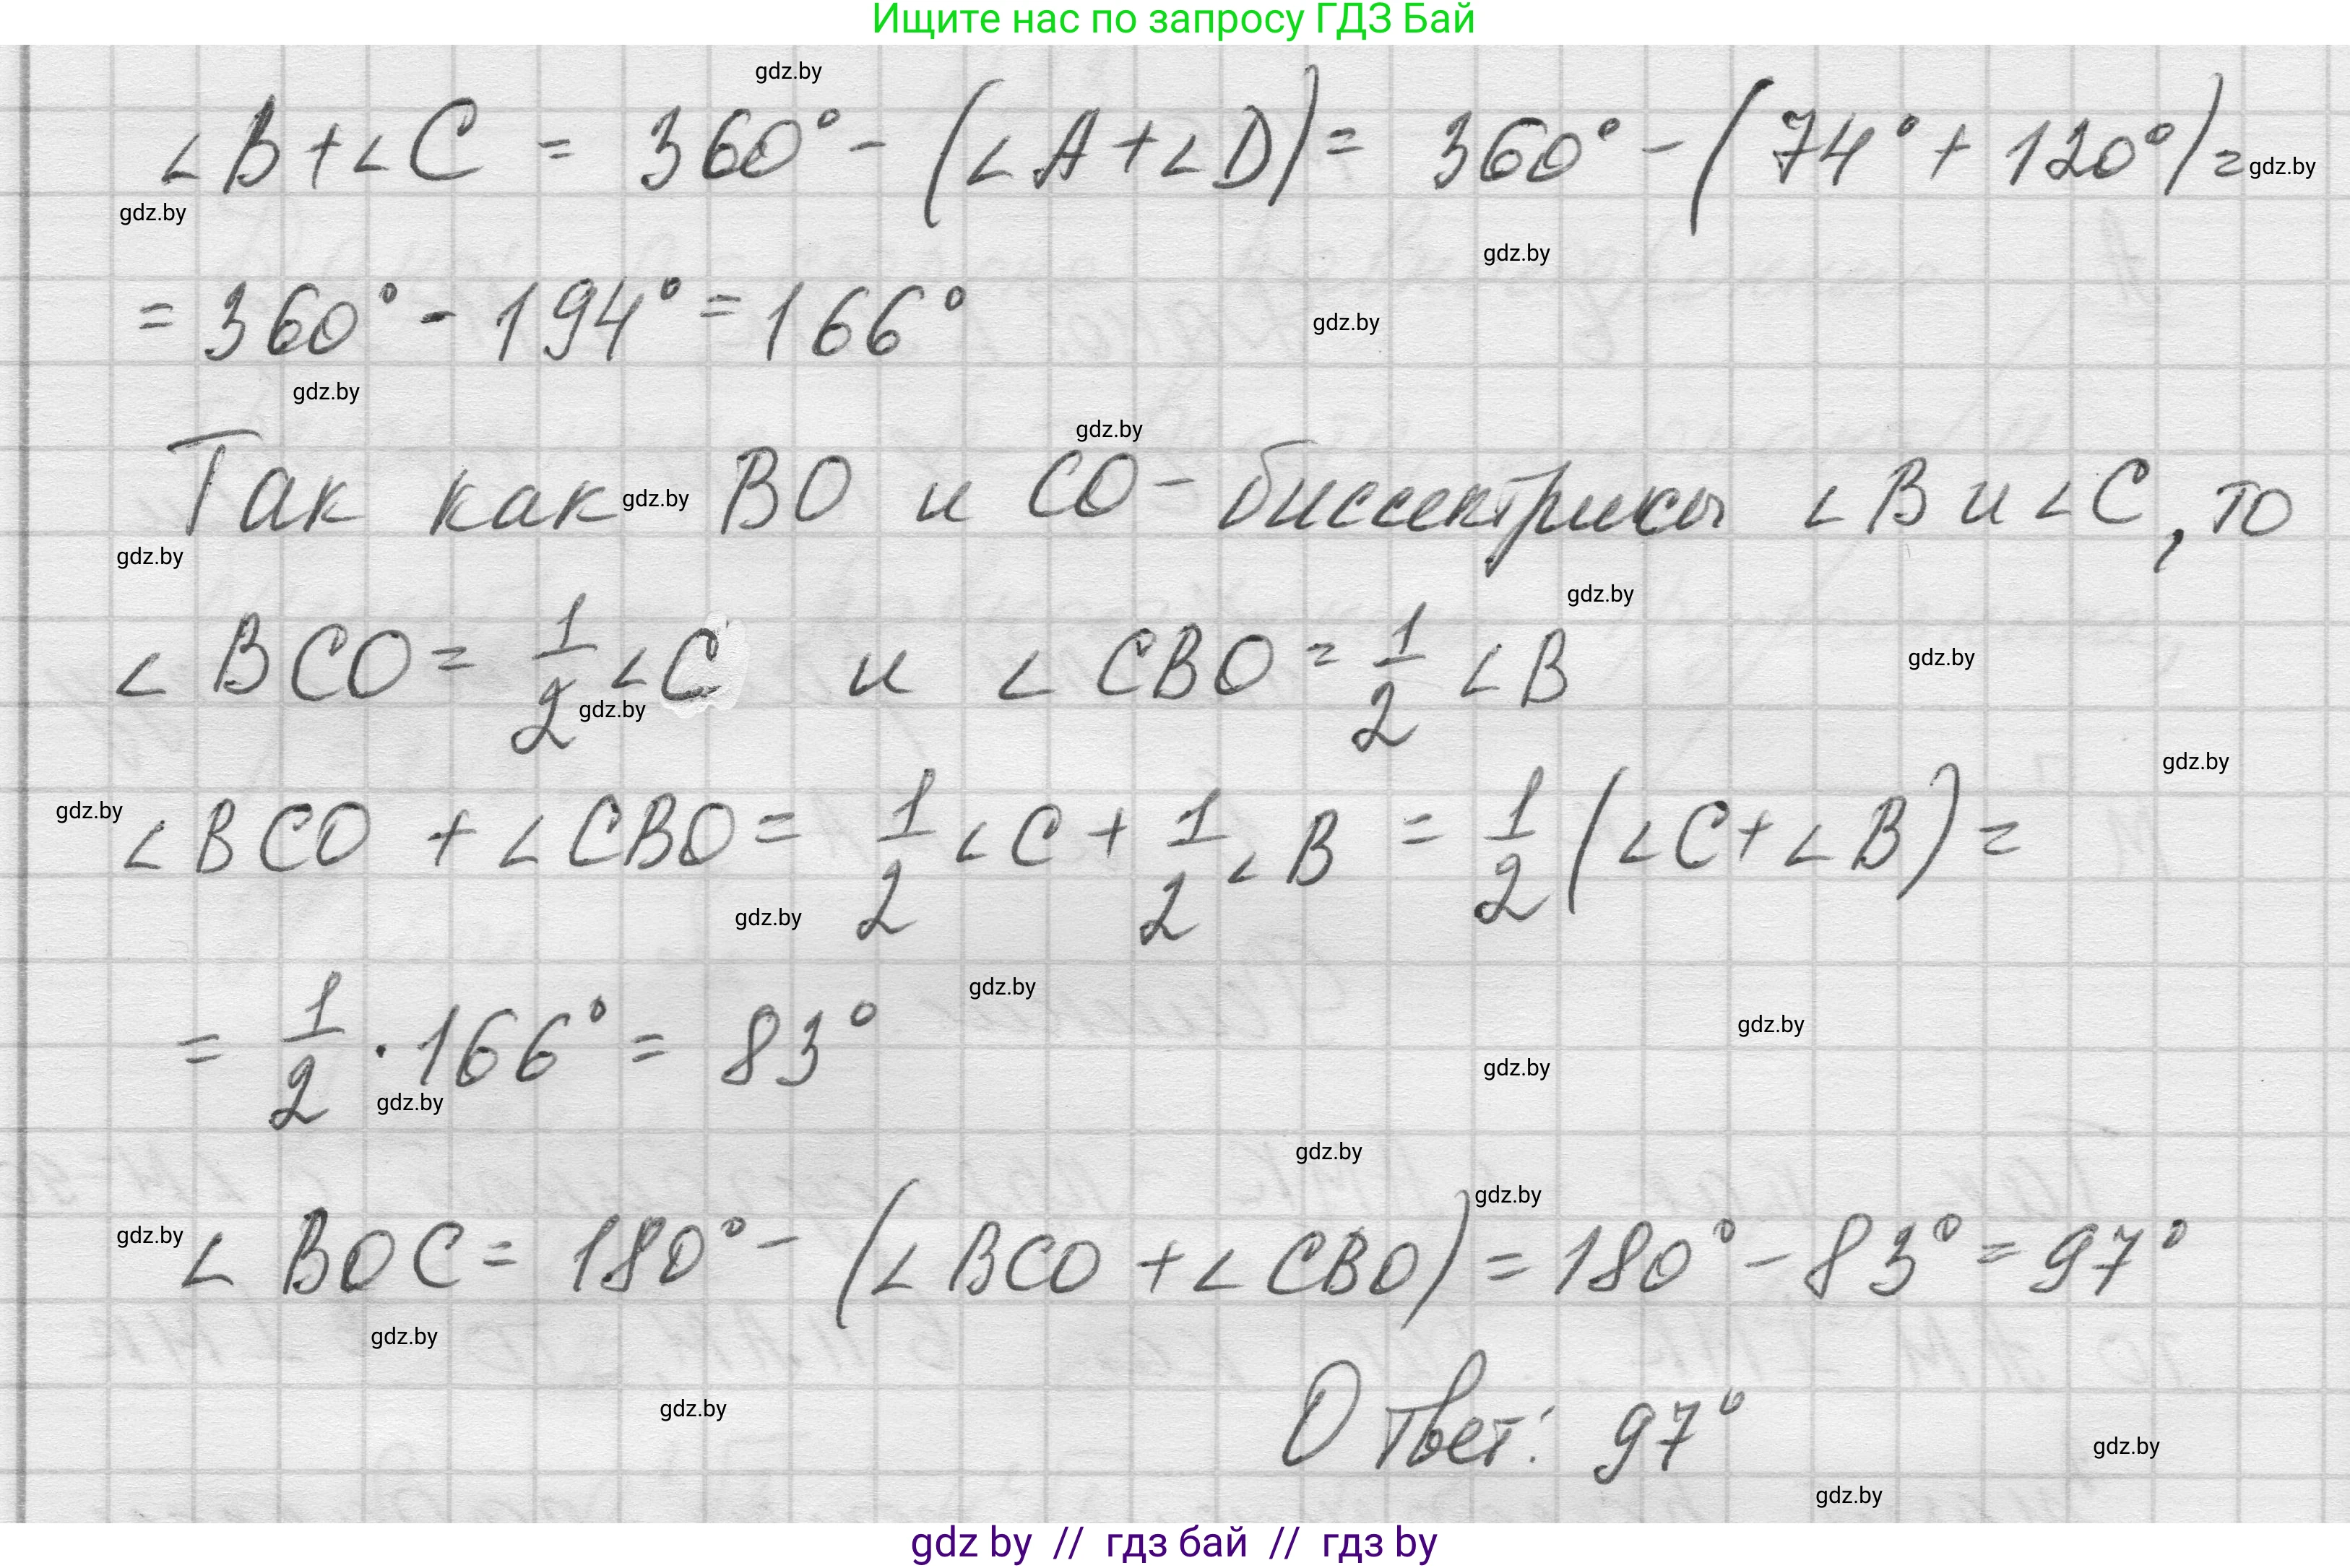 Ищите нас по запросу ГДЗ Бай
gdz.by
∠B+∠C = 360° - (∠A+∠D) = 360° - (74° + 120°) =
gdz.by
gdz.by
gdz.by
= 360° - 194° = 166°
gdz.by
gdz.by
gdz.by
Так как BO и CO - биссектрисы ∠B и ∠C, то
gdz.by
gdz.by
gdz.by
∠BCO = 1/2 ∠C и ∠CBO = 1/2 ∠B
gdz.by
gdz.by
gdz.by
gdz.by
∠BCO + ∠CBO = 1/2 ∠C + 1/2 ∠B = 1/2 (∠C+∠B) =
gdz.by
gdz.by
= 1/2 · 166° = 83°
gdz.by
gdz.by
gdz.by
gdz.by
gdz.by
gdz.by
∠BOC = 180° - (∠BCO + ∠CBO) = 180° - 83° = 97°
gdz.by
gdz.by
Ответ: 97°
gdz.by
gdz.by
gdz by // гдз бай // гдз by